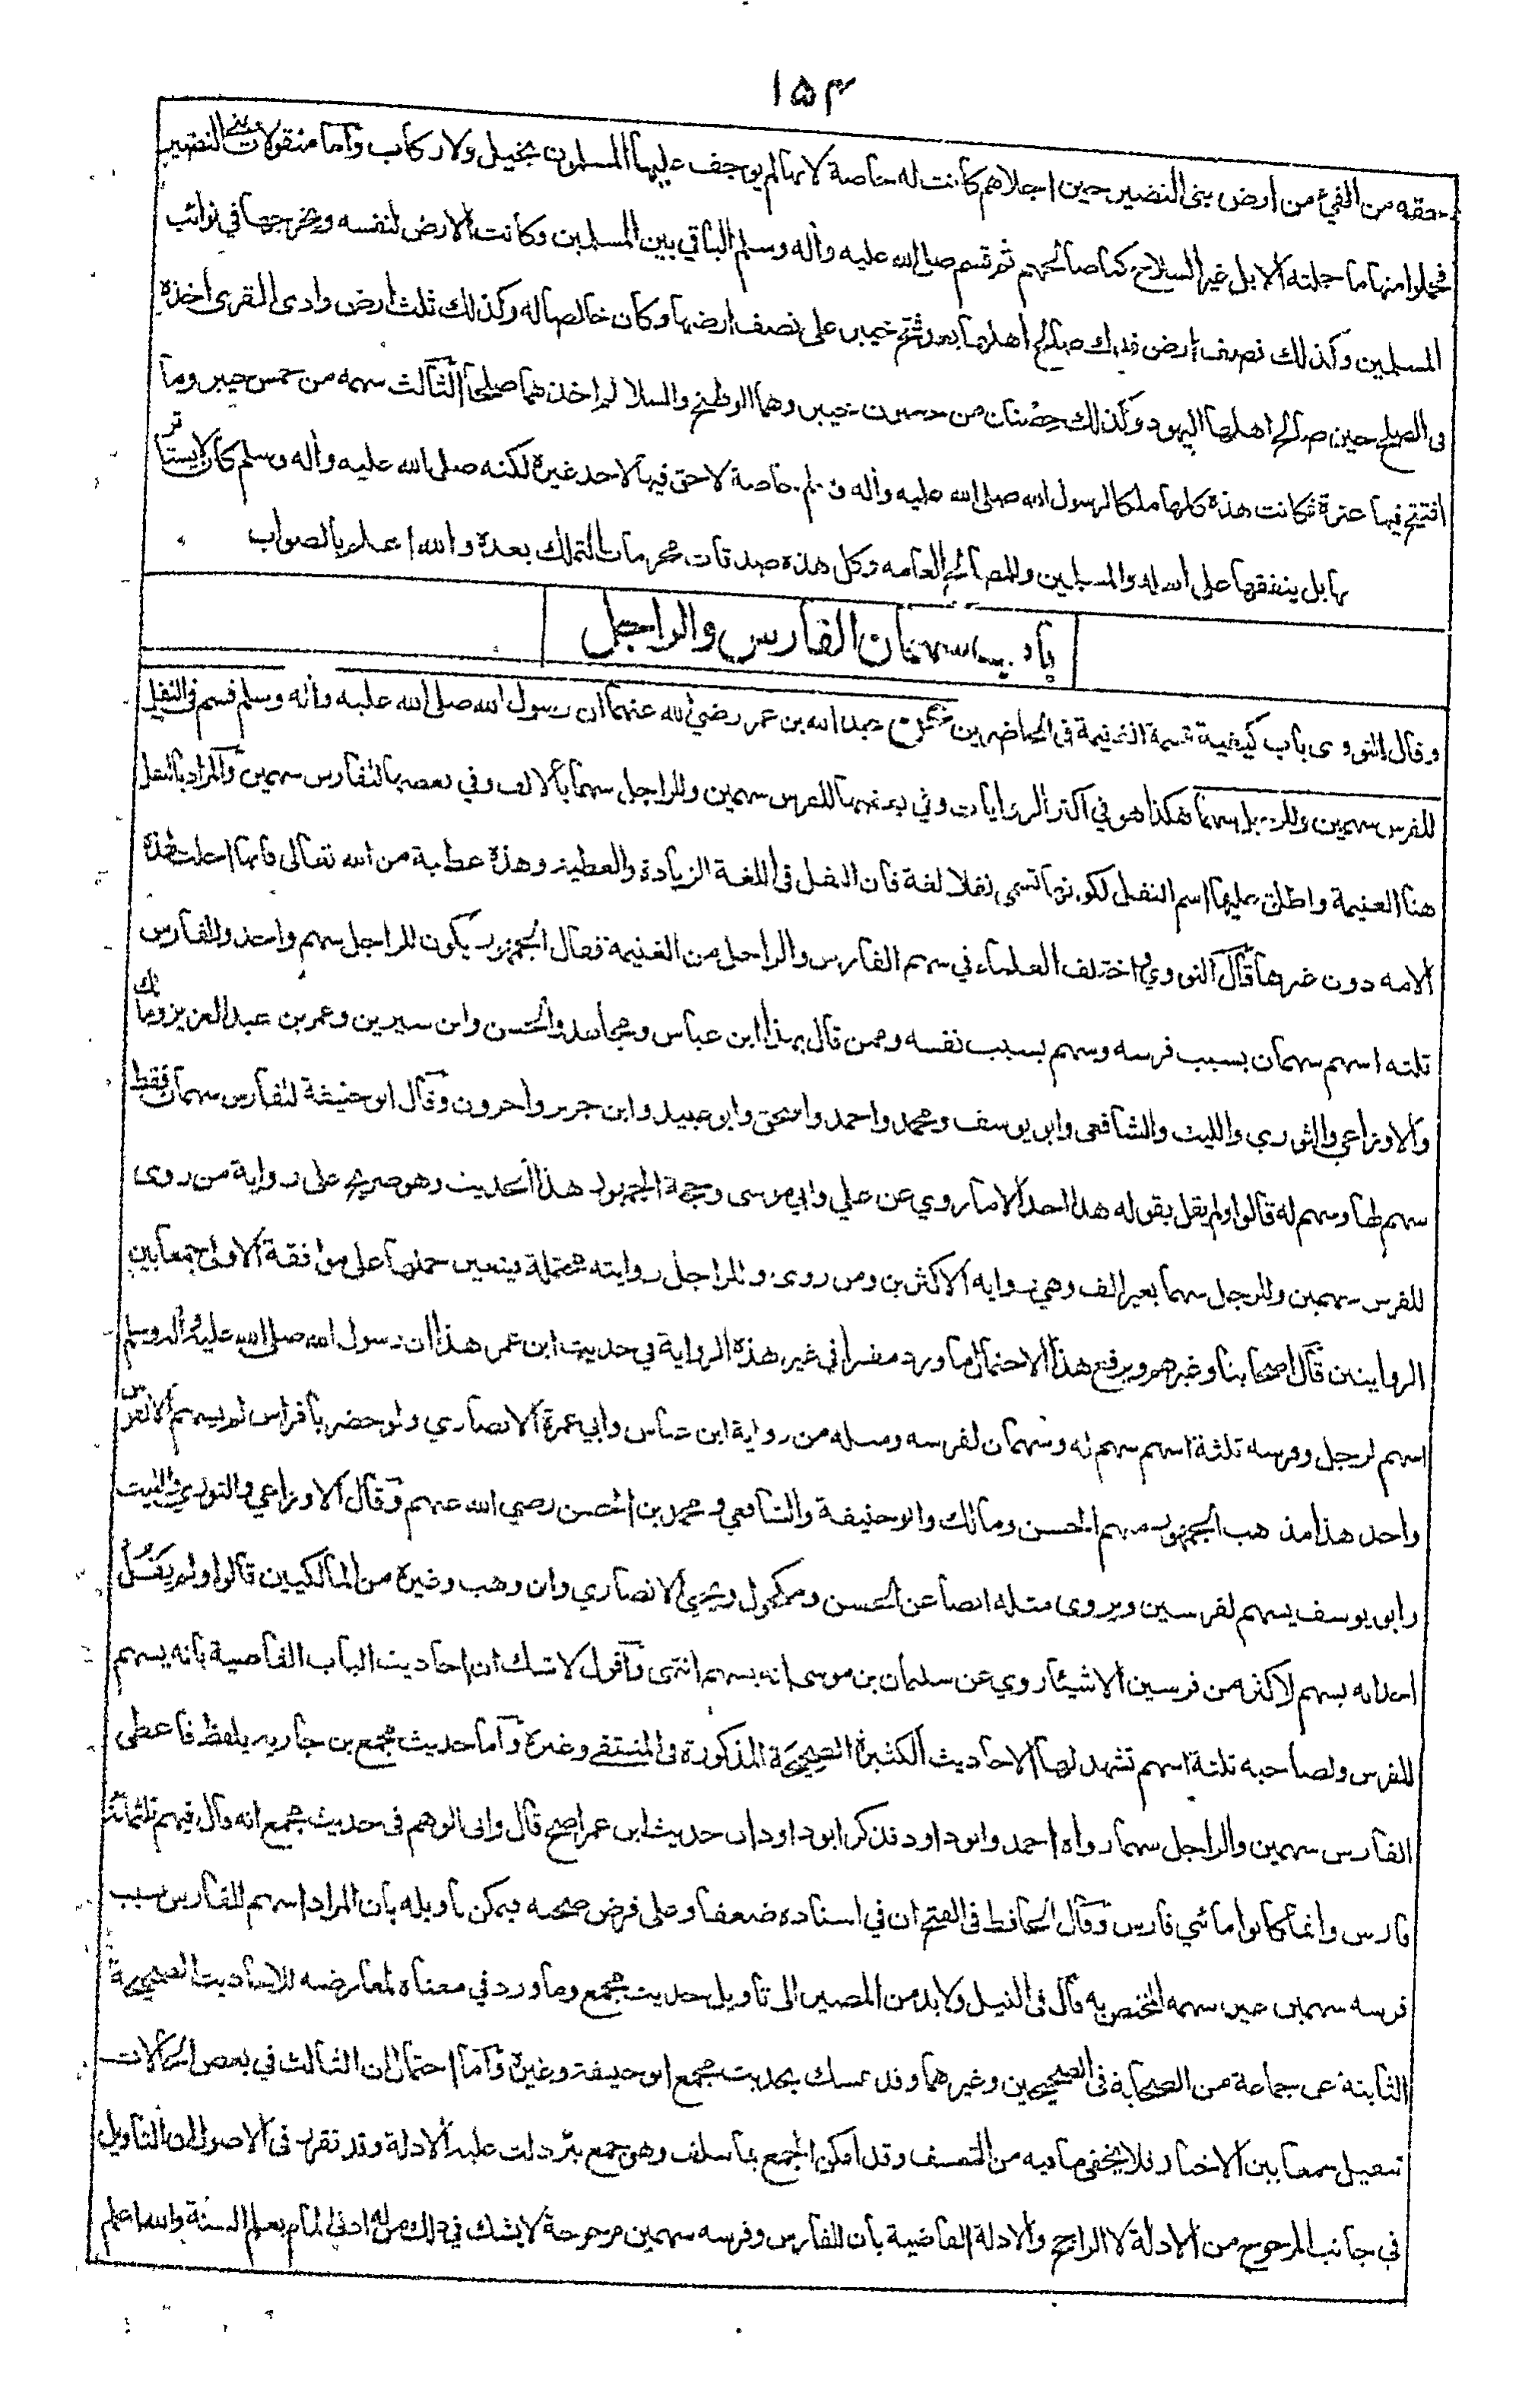 ١٥٣
حقه من الفيء من ارض بنى النضير حين اجلاهم كانت له خاصة لانها لم يوجف عليها المسلمون بخيل ولا ركاب واما منقولات بني النضير
فحملوا منها ما حملته الابل غير السلاح كما صالحهم ثم قسم صلى الله عليه واله وسلم الباقي بين المسلمين وكانت الارض لنفسه ويخرجها في نوائب
المسلمين وكذلك نصف ارض فدك صالح اهلها بعد فتح خيبر على نصف ارضها وكان خالصا له وكذلك ثلث ارض وادى القرى اخذه
فى الصلح حين صالح اهلها اليهود وكذلك حصنان من حصون خيبر وهما الوطيخ والسلالم اخذهما صلحا الثالث سهمه من خمس خيبر وما
افتتح فيها عنوة فكانت هذه كلها ملكا لرسول الله صلى الله عليه واله وسلم خاصة لا حق فيها لاحد غيره لكنه صلى الله عليه واله وسلم كان لا يستاثر
بها بل ينفقها على اهله والمسلمين وللمصالح العامه وكل هذه صدقات محرمات التملك بعده والله اعلم بالصواب
باب سهمان الفارس والراجل
وقال النووى باب كيفية قسمة الغنيمة فى الحاضرين عن عبد الله بن عمر رضي الله عنهما ان رسول الله صلى الله عليه واله وسلم قسم فى النفل
للفرس سهمين وللرجل سهما هكذا هو في اكثر الروايات وفي بعضها للفرس سهمين وللراجل سهما بالالف وفي بعضها للفارس سهمين والمراد بالنفل
هنا الغنيمة واطلق عليها اسم النفل لكونها تسمى نفلا لغة فان النفل فى اللغة الزيادة والعطية وهذه عطية من الله تعالى فانها احلت لهذه
الامه دون غيرها قال النووي واختلف العلماء في سهم الفارس والراجل من الغنيمة فقال الجمهور يكون للراجل سهم واحد وللفارس
ثلثه اسهم سهمان بسبب فرسه وسهم بسبب نفسه وممن قال بهذا ابن عباس ومجاهد والحسن وابن سيرين وعمر بن عبد العزيز ومالك
والاوزاعي والثوري والليث والشافعى وابو يوسف ومحمد واحمد واسحق وابو عبيد وابن جرير واخرون وقال ابو حنيفة للفارس سهمان فقط
سهم لها وسهم له قالوا ولم يقل بقوله هذا احد الا ما روي عن علي وابي موسى وحجة الجمهور هذا الحديث وهو صريح على رواية من روى
للفرس سهمين وللرجل سهما بغير الف وهي رواية الاكثرين ومن روى وللراجل روايته محتملة يتعين حملها على موافقة الاولى جمعا بين
الروايتين قال اصحابنا وغيرهم ويرفع هذا الاحتمال ما ورد مفسرا في غير هذه الرواية في حديث ابن عمر هذا ان رسول الله صلى الله عليه واله وسلم
اسهم لرجل وفرسه ثلثة اسهم سهم له وسهمان لفرسه ومثله من رواية ابن عباس وابي عمرة الانصاري ولو حضر بافراس لم يسهم الا لفرس
واحد هذا مذهب الجمهور منهم الحسن ومالك وابو حنيفة والشافعي ومحمد بن الحسن رضي الله عنهم وقال الاوزاعي والثوري والليث
وابو يوسف يسهم لفرسين ويروى مثله ايضا عن الحسن ومكحول ويحيى الانصاري وابن وهب وغيره من المالكيين قالوا ولم يقل
احد انه يسهم لاكثر من فرسين الا شيئا روي عن سليمان بن موسى انه يسهم انتهى واقول لا شك ان احاديث الباب القاضية بانه يسهم
للفرس ولصاحبه ثلثة اسهم تشهد لها الاحاديث الكثيرة الصحيحة المذكورة فى المنتقى وغيره واما حديث مجمع بن جارية بلفظ فاعطى
الفارس سهمين والراجل سهما رواه احمد وابو داود فذكر ابو داود ان حديث ابن عمر اصح قال واتى الوهم فى حديث مجمع انه قال فيهم ثلثمائة
فارس وانما كانوا مائتي فارس وقال الحافظ فى الفتح ان في اسناده ضعفا وعلى فرض صحته فيمكن تاويله بان المراد اسهم للفارس بسبب
فرسه سهمين غير سهمه المختص به قال فى النيل ولا بد من المصير الى تاويل حديث مجمع وما ورد في معناه لمعارضته للاحاديث الصحيحة
الثابتة عن جماعة من الصحابة فى الصحيحين وغيرهما وقد تمسك بحديث مجمع ابو حنيفة وغيره واما احتمال ان الثالث في بعض الحالات
تنفيل جمعا بين الاخبار فلا يخفى ما فيه من التعسف وقد امكن الجمع بما سلف وهو جمع نير دلت عليه الادلة وقد تقرر فى الاصول ان التاويل
في جانب المرجوح من الادلة لا الراجح والادلة القاضية بان للفارس وفرسه سهمين مرجوحة لا يشك في ذلك من له ادنى المام بعلم السنة والله اعلم